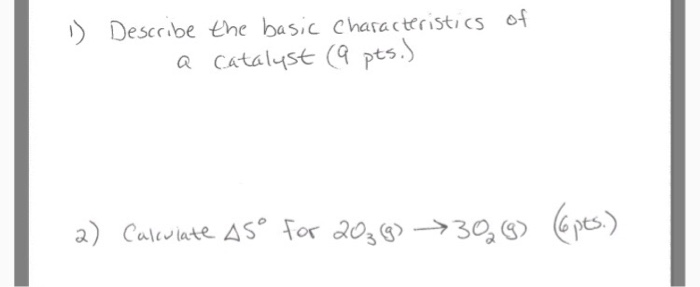 1) Describe the basic characteristics of
a catalyst (9 pts.)
2) Calculate ΔS° for 2O₃(g) → 3O₂(g) (6pts.)